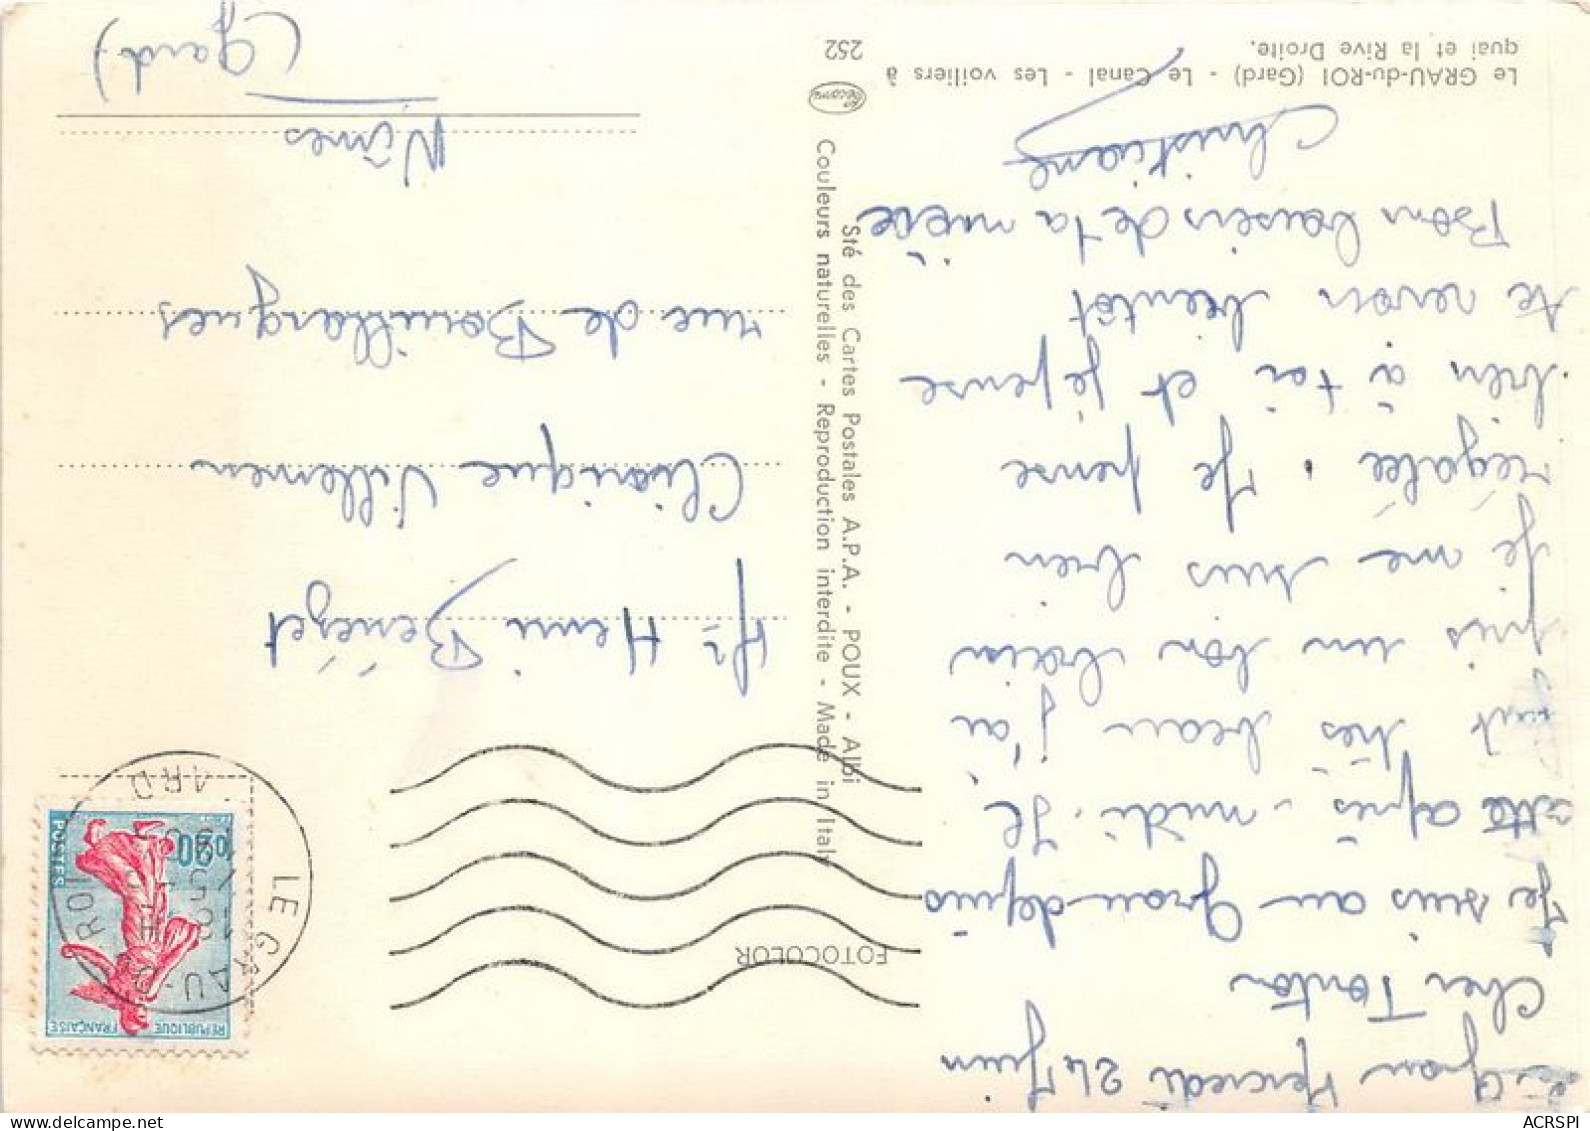 Le GRAU-du-ROI (Gard) - Le Canal - Les voiliers à
quai et la Rive Droite.
252
Grau Mercredi 24 Juin
Cher Tonton
Je suis au Grau depuis
cette après-midi. Il
fait très beau j'ai
pris un bon bain
Je me suis bien
régalée. Je pense
bien à toi et je pense
te revoir bientôt
Bons baisers de ta nièce
Christiane
FOTOCOLOR
Sté des Cartes Postales A.P.A. - POUX - Albi
Couleurs naturelles - Reproduction interdite - Made in Italy
RÉPUBLIQUE FRANÇAISE
POSTES
LE GRAU-DU-ROI
Mr Henri Bénézet
Clinique Villemin
rue de Bouillargues
Nîmes
(Gard)
ACRSPI